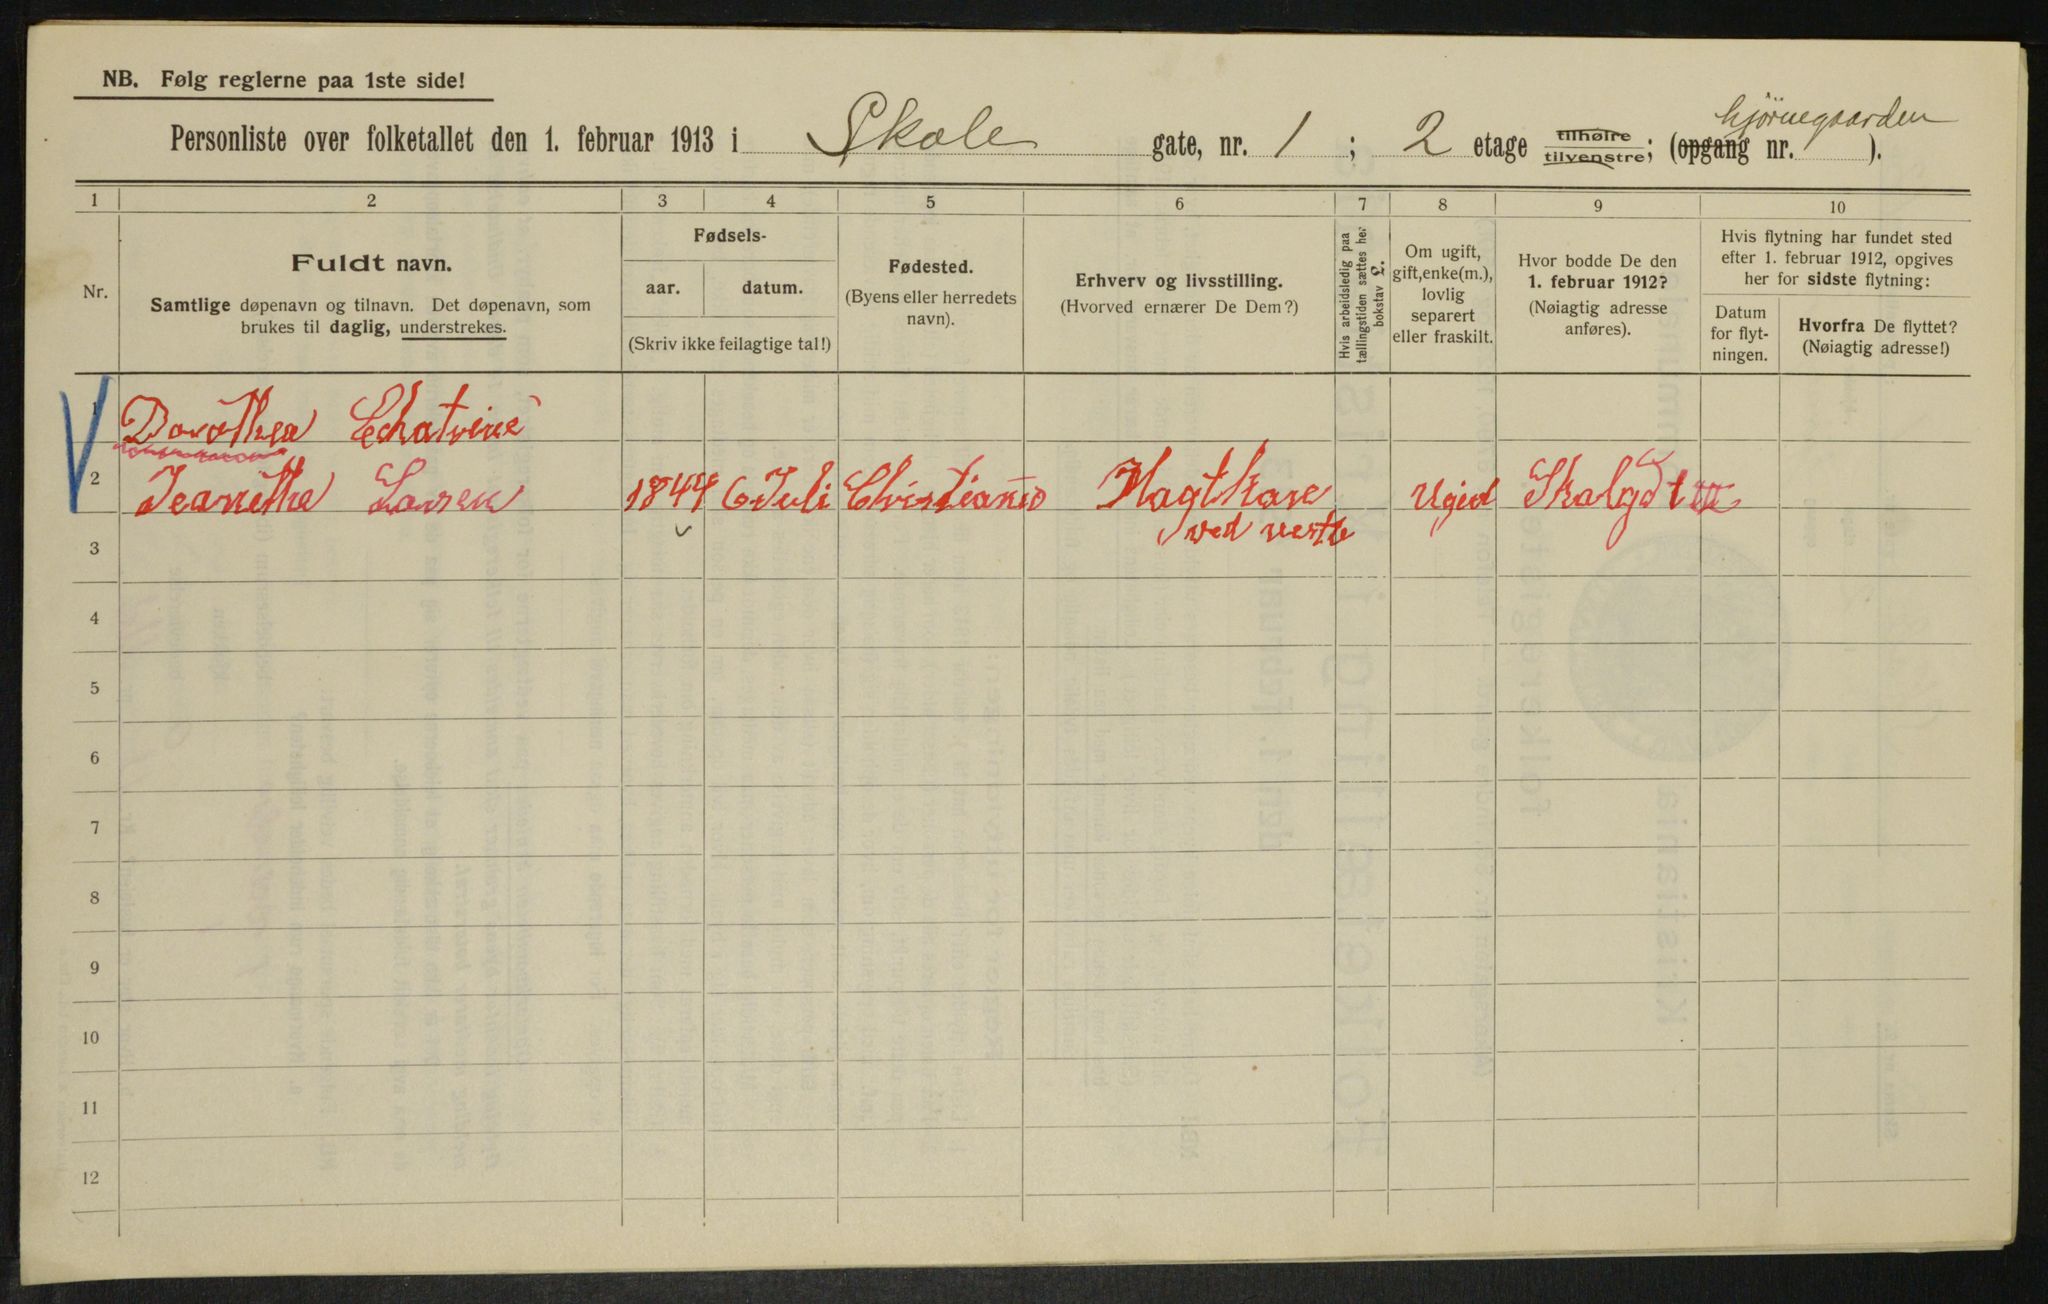 NB. Følg reglerne paa 1ste side!
hjörnegaarden
Personliste over folketallet den 1. februar 1913 i Skole gate, nr. 1 ; 2 etage tilhøire tilvenstre; (opgang nr. ).
1 2 3 4 5 6 7 8 9 10
Nr.
Fuldt navn.
Samtlige døpenavn og tilnavn. Det døpenavn, som
brukes til daglig, understrekes.
Fødsels-
aar. datum.
(Skriv ikke feilagtige tal!)
Fødested.
(Byens eller herredets
navn).
Erhverv og livsstilling.
(Hvorved ernærer De Dem?)
Hvis arbeidsledig paa
tællingstiden sættes her
bokstav L.
Om ugift,
gift, enke(m.),
lovlig
separert
eller fraskilt.
Hvor bodde De den
1. februar 1912?
(Nøiagtig adresse
anføres).
Hvis flytning har fundet sted
efter 1. februar 1912, opgives
her for sidste flytning:
Datum
for flyt-
ningen.
Hvorfra De flyttet?
(Nøiagtig adresse!)
1 Dorothea Chatrine
2 Jeanethe Larsen 1844 6 Juli Christiania Ugivt Skolgd 1
ved
3
4
5
6
7
8
9
10
11
12